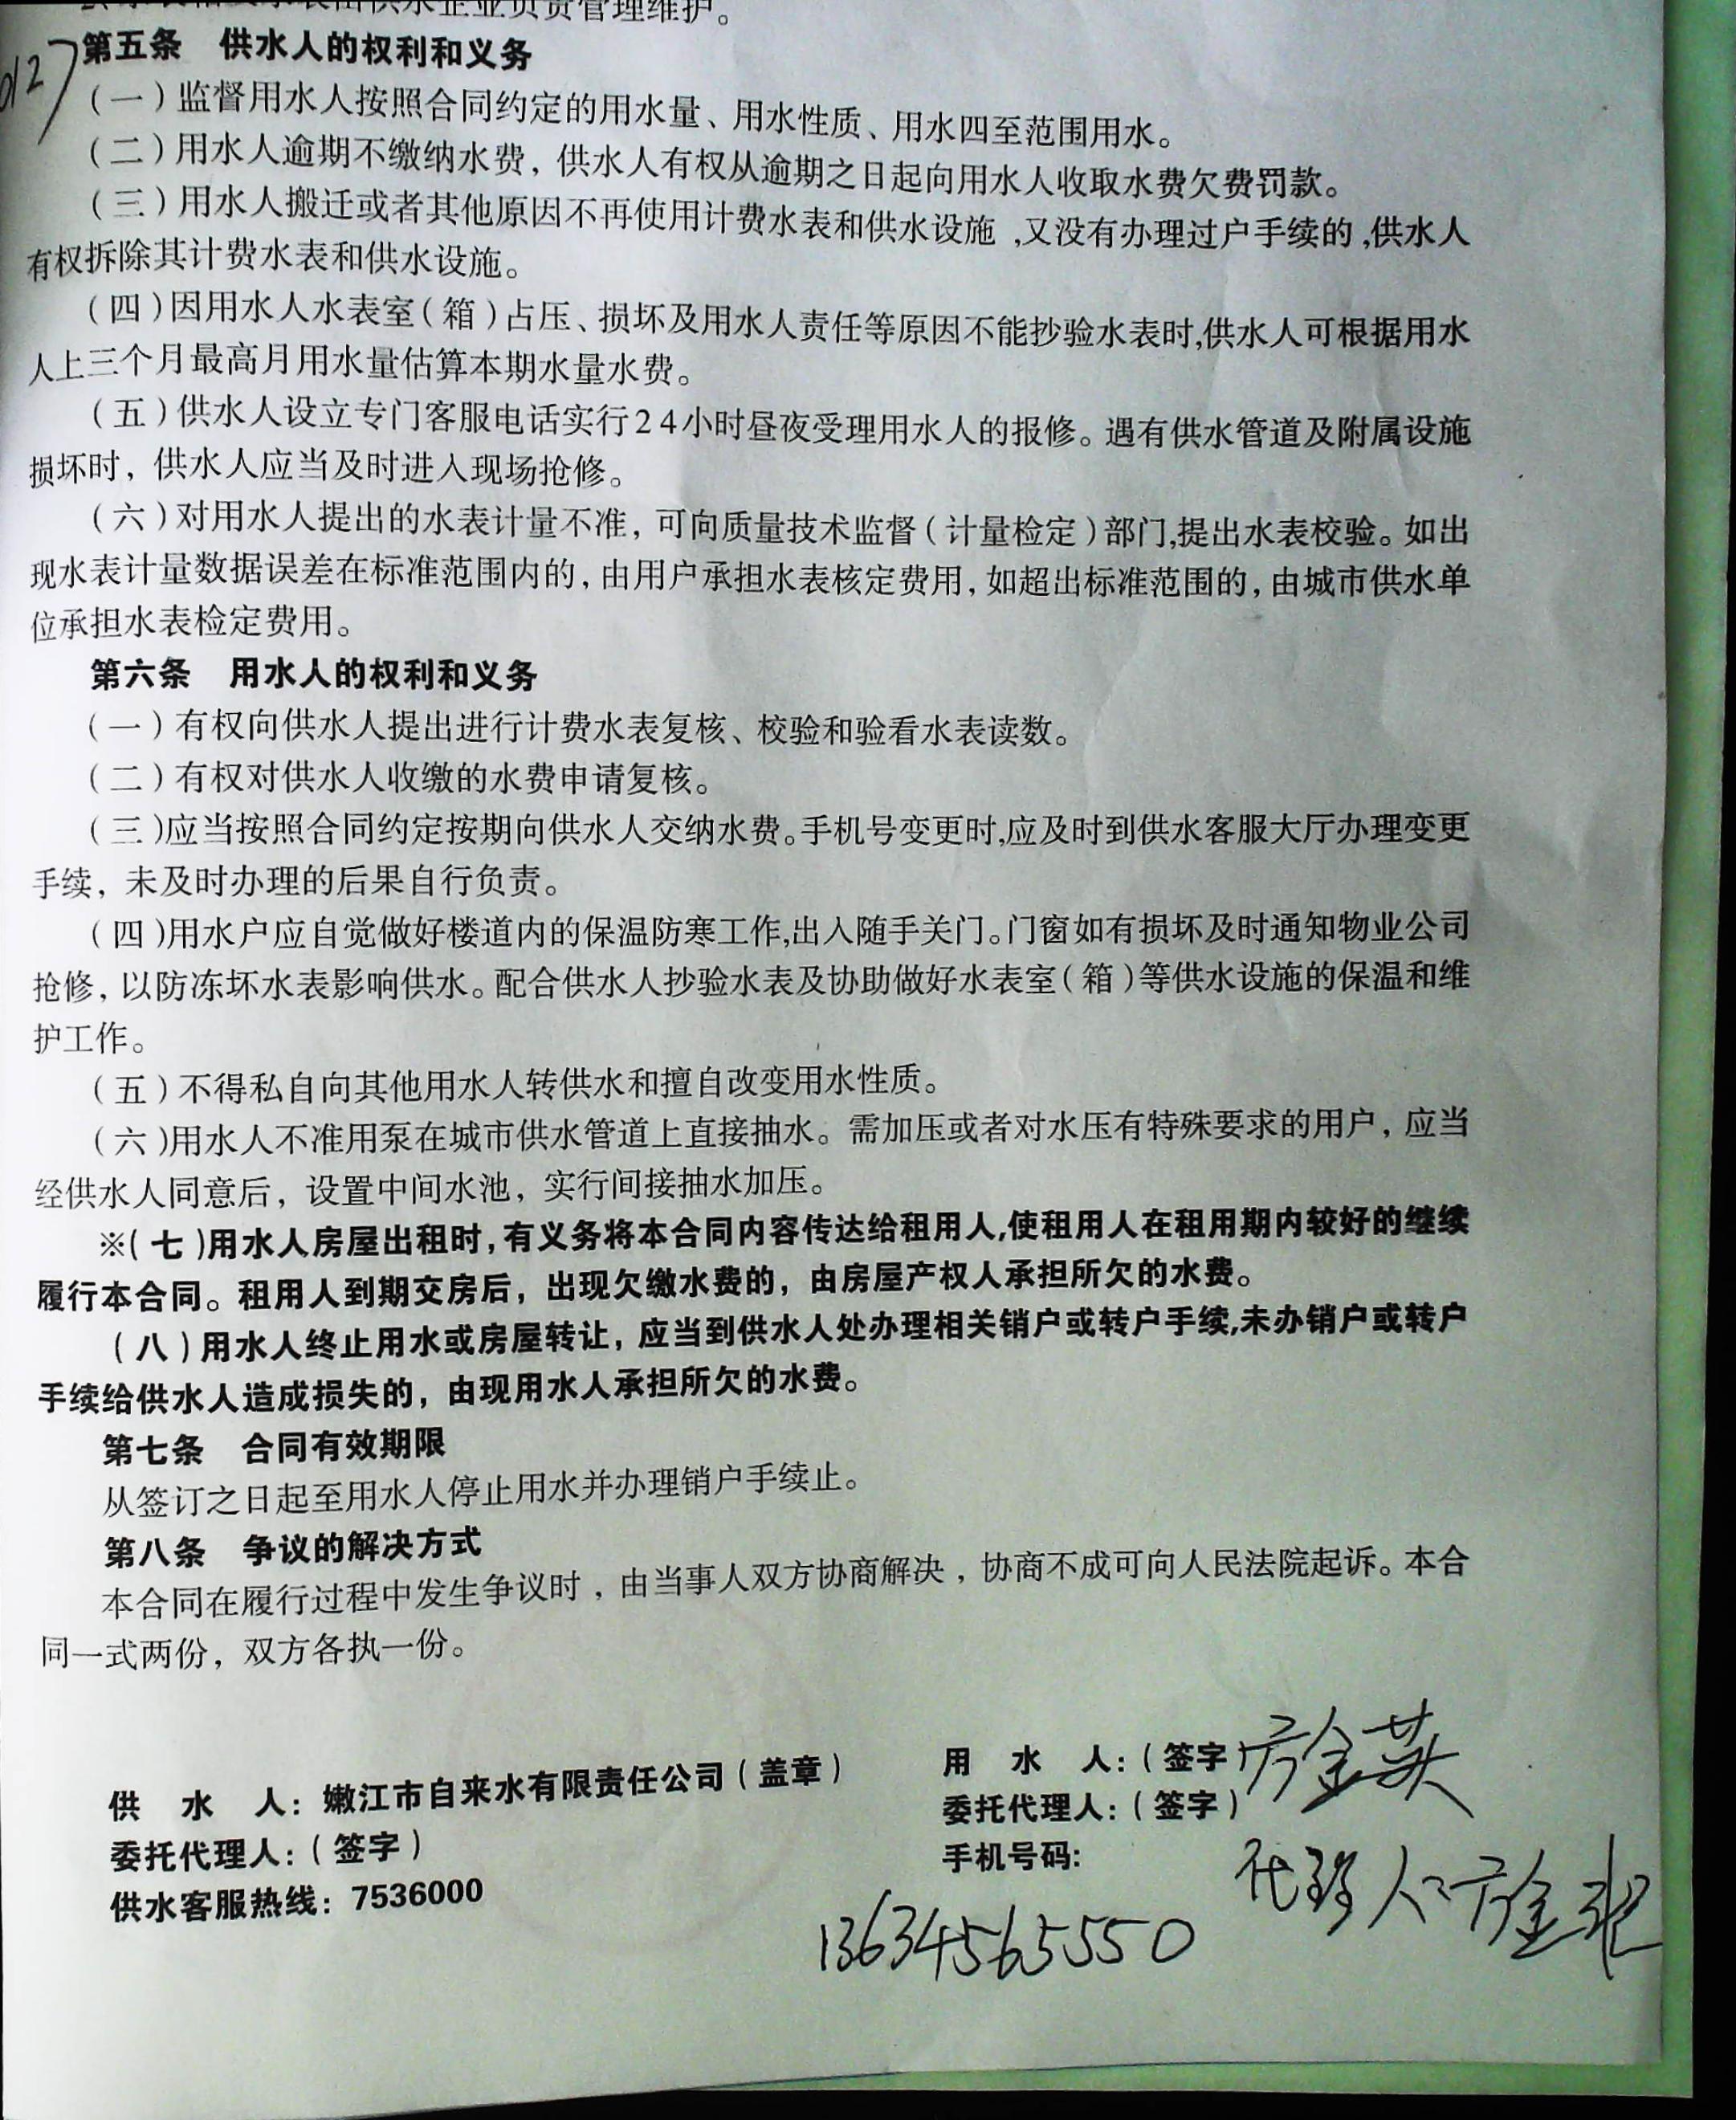 负责管理维护。
第五条 供水人的权利和义务
（一）监督用水人按照合同约定的用水量、用水性质、用水四至范围用水。
（二）用水人逾期不缴纳水费，供水人有权从逾期之日起向用水人收取水费欠费罚款。
（三）用水人搬迁或者其他原因不再使用计费水表和供水设施,又没有办理过户手续的,供水人
有权拆除其计费水表和供水设施。
（四）因用水人水表室（箱）占压、损坏及用水人责任等原因不能抄验水表时,供水人可根据用水
人上三个月最高月用水量估算本期水量水费。
（五）供水人设立专门客服电话实行24小时昼夜受理用水人的报修。遇有供水管道及附属设施
损坏时，供水人应当及时进入现场抢修。
（六）对用水人提出的水表计量不准，可向质量技术监督（计量检定）部门,提出水表校验。如出
现水表计量数据误差在标准范围内的，由用户承担水表核定费用，如超出标准范围的，由城市供水单
位承担水表检定费用。
第六条 用水人的权利和义务
（一）有权向供水人提出进行计费水表复核、校验和验看水表读数。
（二）有权对供水人收缴的水费申请复核。
（三）应当按照合同约定按期向供水人交纳水费。手机号变更时,应及时到供水客服大厅办理变更
手续，未及时办理的后果自行负责。
（四）用水户应自觉做好楼道内的保温防寒工作,出入随手关门。门窗如有损坏及时通知物业公司
抢修，以防冻坏水表影响供水。配合供水人抄验水表及协助做好水表室（箱）等供水设施的保温和维
护工作。
（五）不得私自向其他用水人转供水和擅自改变用水性质。
（六）用水人不准用泵在城市供水管道上直接抽水。需加压或者对水压有特殊要求的用户，应当
经供水人同意后，设置中间水池，实行间接抽水加压。
※（七）用水人房屋出租时,有义务将本合同内容传达给租用人,使租用人在租用期内较好的继续
履行本合同。租用人到期交房后，出现欠缴水费的，由房屋产权人承担所欠的水费。
（八）用水人终止用水或房屋转让，应当到供水人处办理相关销户或转户手续,未办销户或转户
手续给供水人造成损失的，由现用水人承担所欠的水费。
第七条 合同有效期限
从签订之日起至用水人停止用水并办理销户手续止。
第八条 争议的解决方式
本合同在履行过程中发生争议时，由当事人双方协商解决，协商不成可向人民法院起诉。本合
同一式两份，双方各执一份。
供 水 人：嫩江市自来水有限责任公司（盖章）
委托代理人：（签字）
供水客服热线：7536000
用 水 人：（签字）
委托代理人：（签字）
手机号码：
代理人：
13634565550